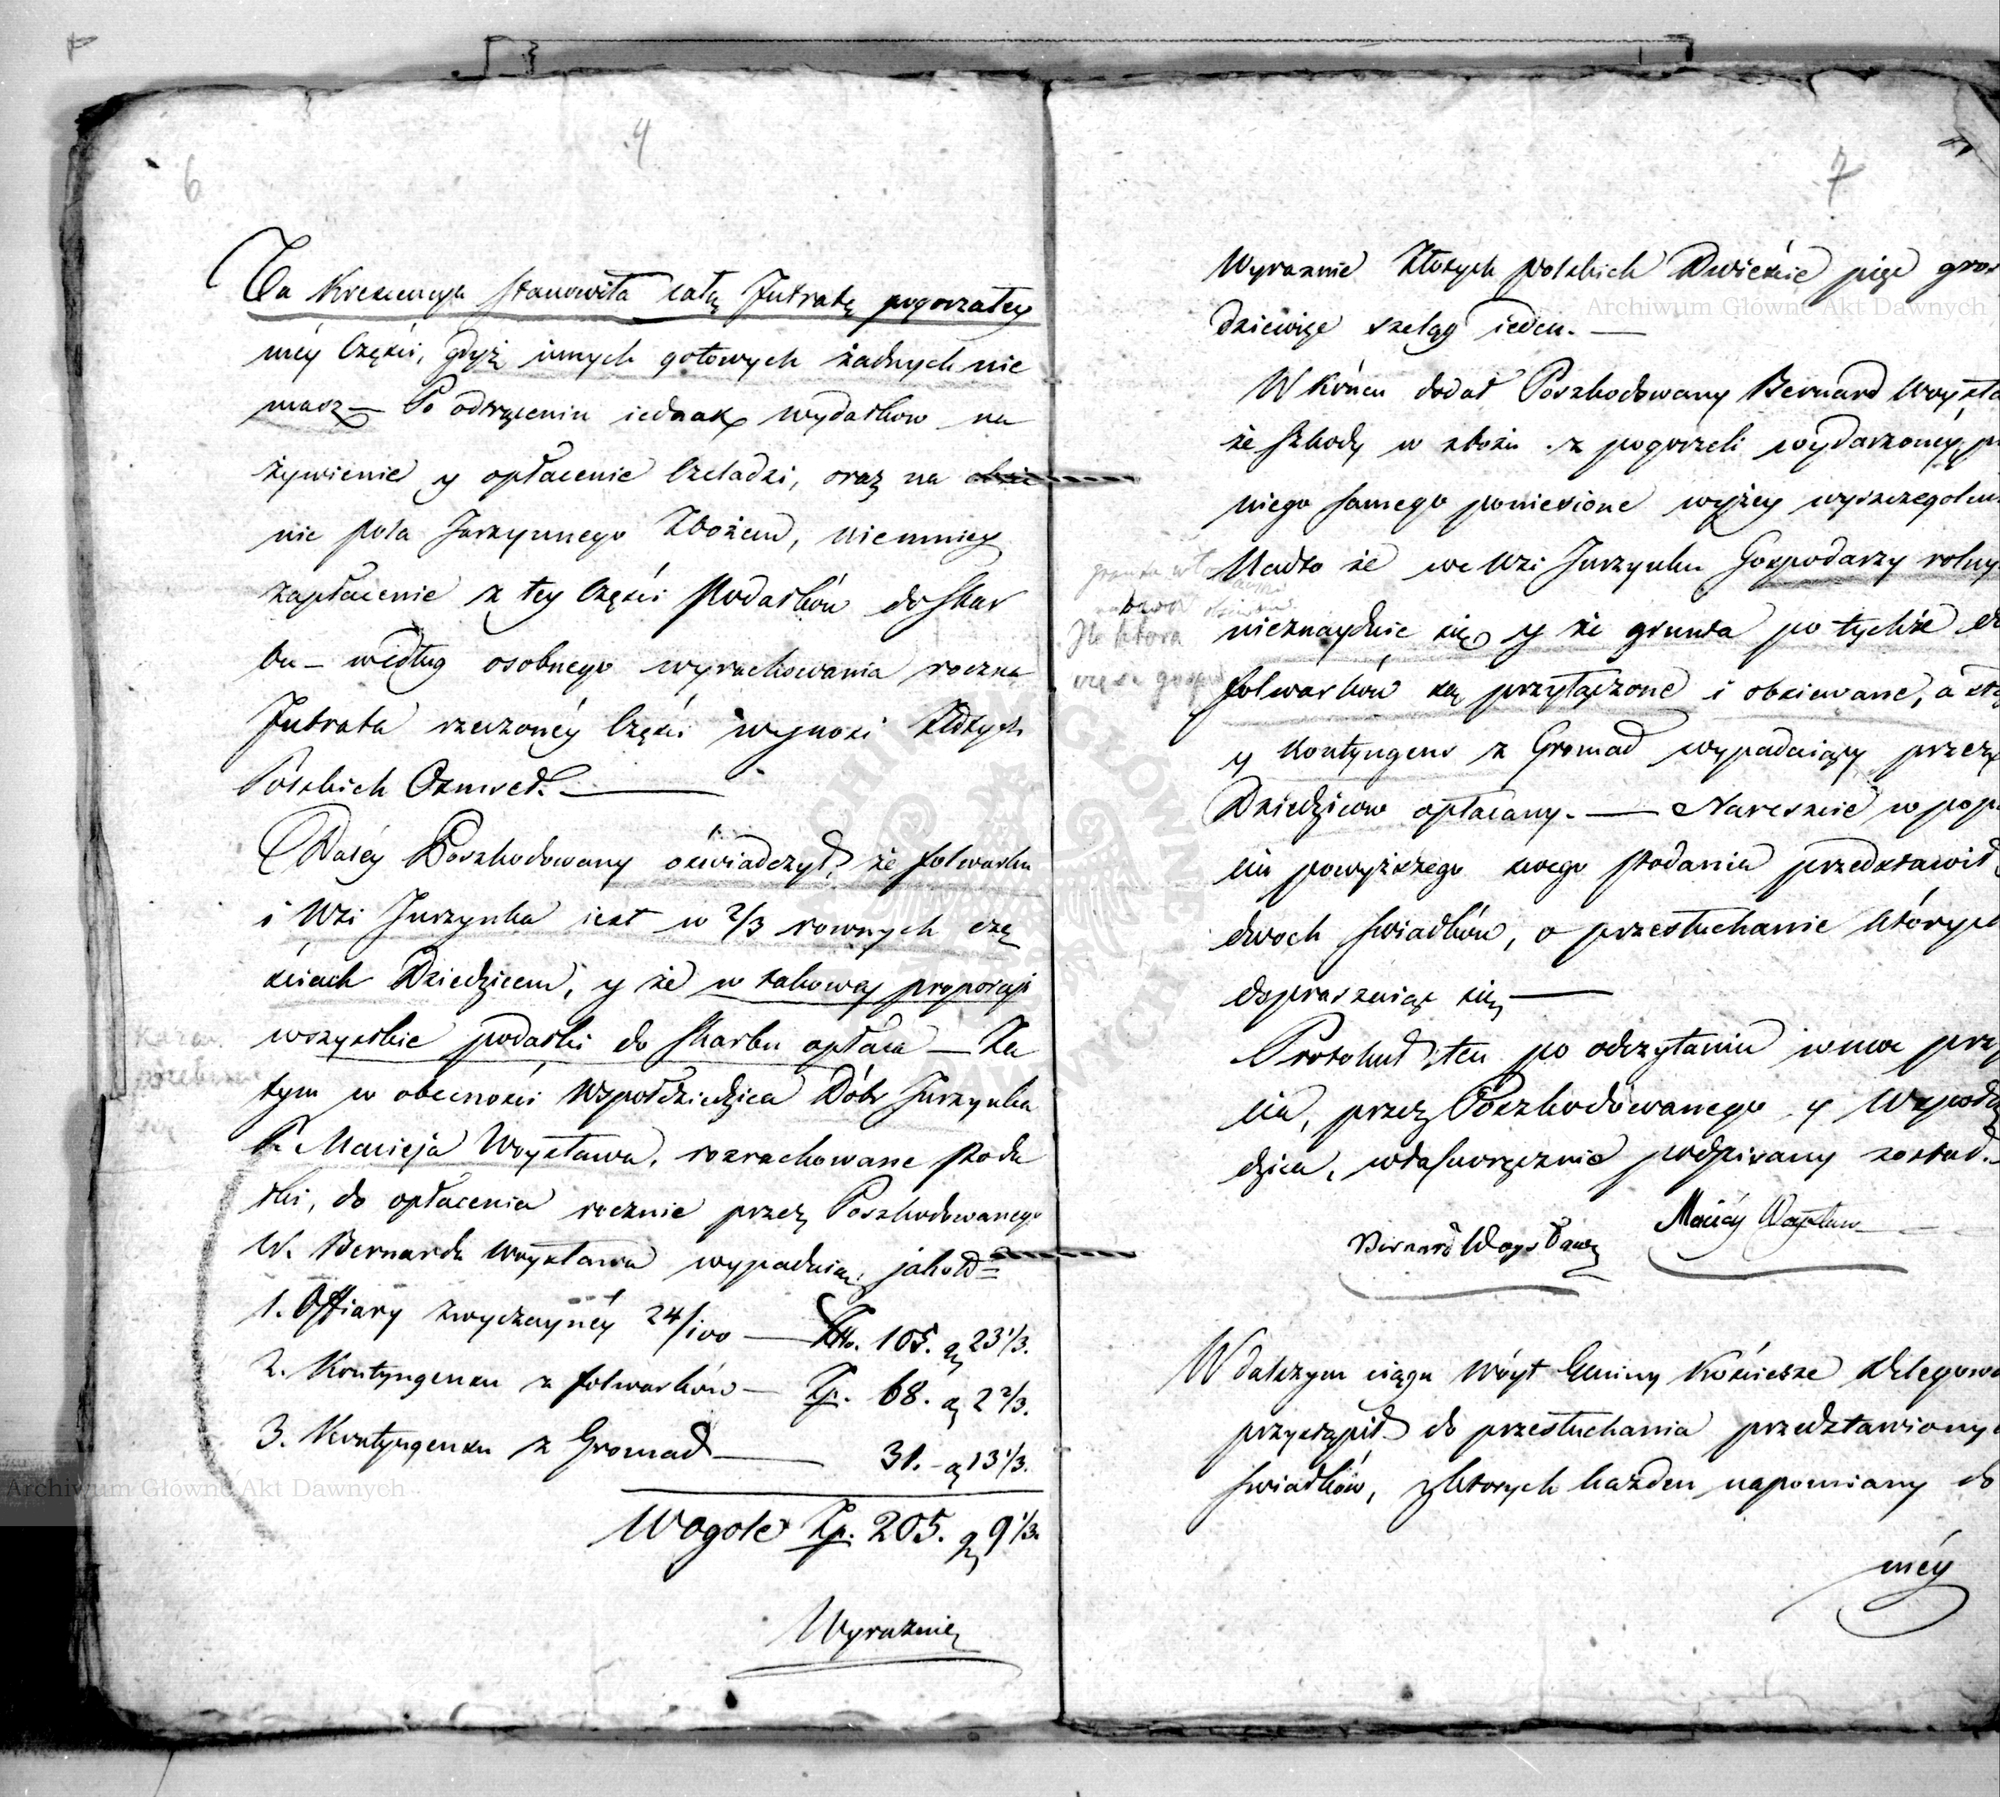 6
4
Ta Krescencya stanowiła całą Intratę pogorzałey
méy Części, gdyż innych gotowych żadnych nie
masz — Po odtrąceniu iednak wydatkow na
żywienie y opłacenie Czeladzi, oraz na obsie
nie pola Jarzynnego Zbożem, niemniey
zapłacenie z tey Części Podatków do Skar
bu — według osobnego wyrachowania roczna
Intrata rzeczonéy Części wynosi Złotych
Polskich Osmset. —
Daléy Poszkodowany oświadczył, że folwarku
i Wsi Jurzynka iest w 2/3 rownych czę
ściach Dziedzicem, y że w takowey proporcyi
wszystkie podatki do Skarbu opłaca — Za
tym w obecności Wspołdziedzica Dóbr Jurzynka
P. Macieja Woysława, rozrachowane Poda
tki, do opłacenia rocznie przez Poszkodowanego
W. Bernarda Woysława wypadaią, jako to =
1. Offiary zwyczaynéy 24/100 — Złp. 105. gr 23 1/3.
2. Kontyngensu z folwarków — Zp. 68. gr 2 2/3.
3. Kontyngensu z Gromad — 31. - gr 13 1/3.
Wogole Zp. 205. gr 9 1/3.
Wyraznie
7
Wyraznie Złotych polskich Dwieście pięć gro
dziewięć szeląg ieden. —
W Końcu dodał Poszkodowany Bernard Woysła
że Szkody w zbożu z pogorzeli wydarzonéy, p
niego samego poniesione wyżey wyszczegoln
Nadto że we Wsi Jurzynku Gospodarzy rolny
nieznayduie się y że grunta po tychże d
folwarków są przyłączone i obsiewane, a ztą
y Kontyngens z Gromad wypadaiący przez
Dziedzicow opłacany. — Nareszcie w pop
ciu powyższego swego Podania przedstawił
dwoch swiadków, o przesłuchanie których
dopraszaiąc się —
Protokuł ten po odczytaniu i przy
ciu, przez Poszkodowanego y Wspołdz
dzica, własnoręcznie podpisany został. —
Bernard Woysław
Maciéy Woysław
W dalszym ciągu Wóyt Gminy Kościesze delegowa
przystąpił do przesłuchania przedstawiony
swiadków, z ktorych każden napomniany do
méy
Jle ktora
Archiwum Główne Akt Dawnych
Archiwum Główne Akt Dawnych
ARCHIWUM GŁÓWNE AKT DAWNYCH